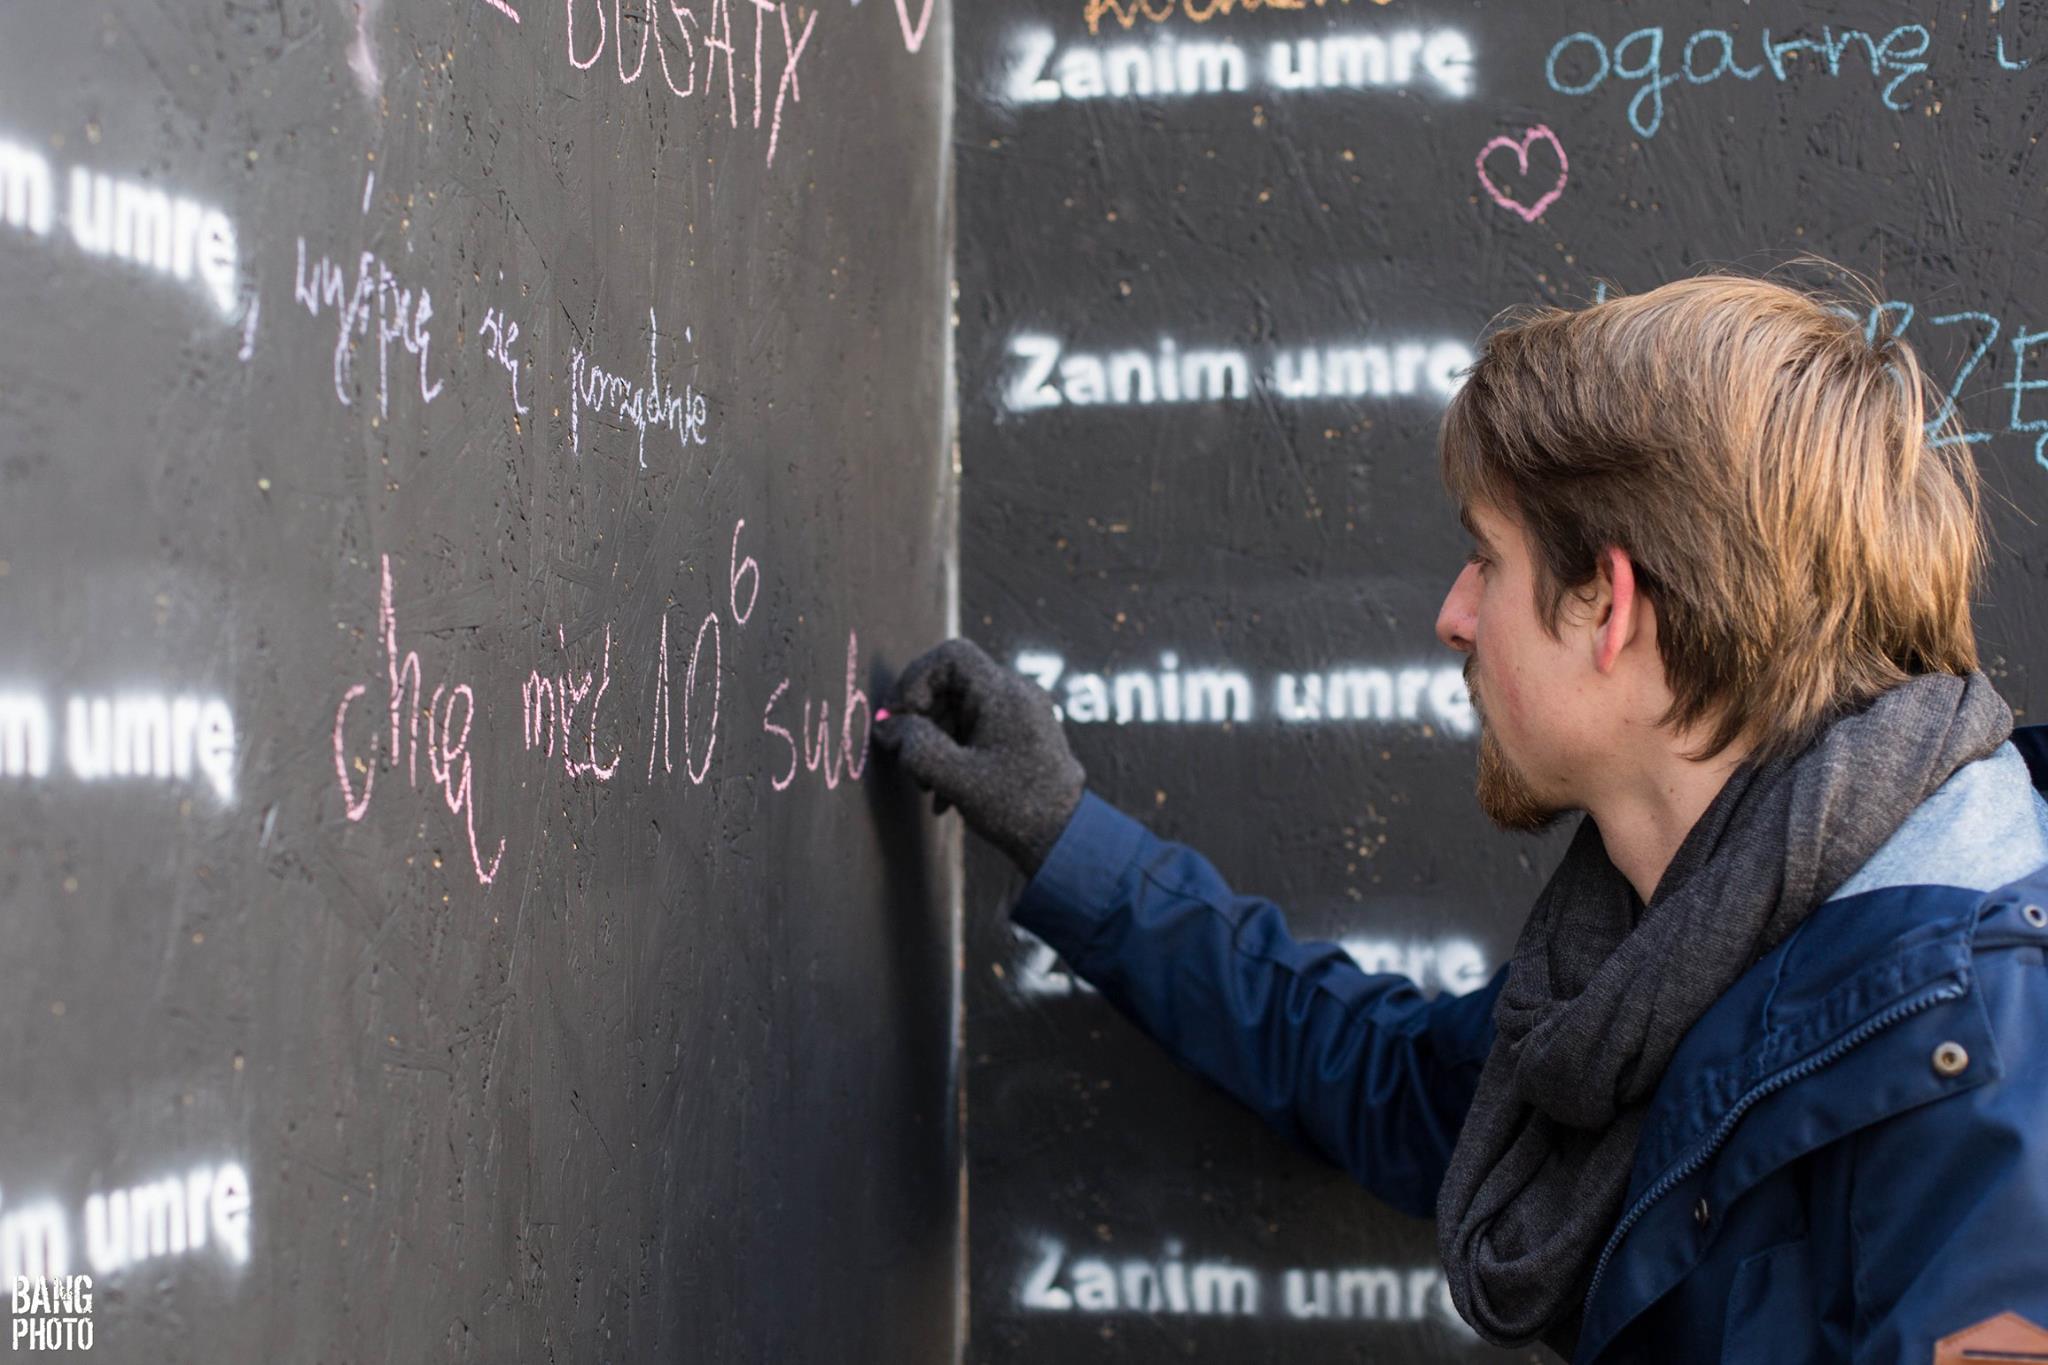 BOGATY
m umrę, wyśpię się porządnie
m umrę chcę mieć 10⁶ sub
m umrę
Zanim umrę ogarnę
Zanim umrę
Zanim umrę
umrę
Zanim umrę
BANG
PHOTO